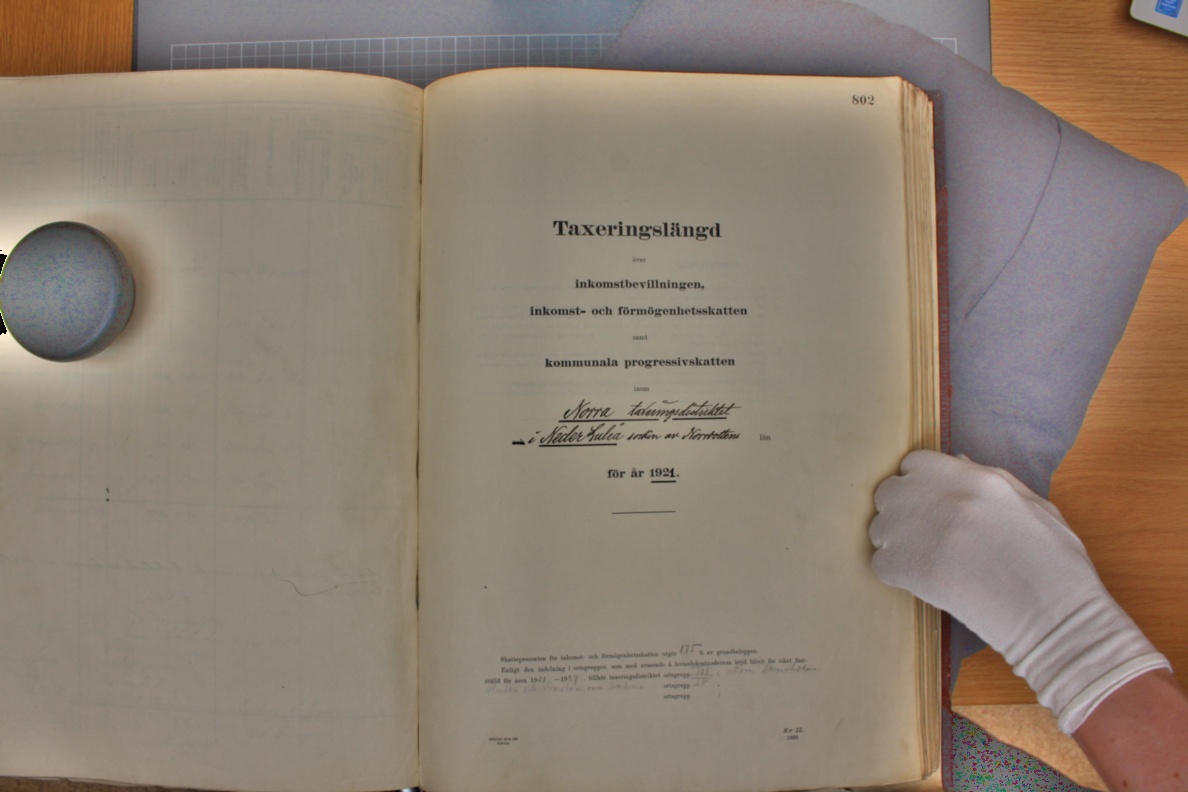 802
Taxeringslängd
över
inkomstbevillningen,
inkomst- och förmögenhetsskatten
samt
kommunala progressivskatten
inom
Norra taxeringsdistriktet
i Neder Luleå socken av Norrbottens län
för år 1921.
Skatteprocenten för inkomst- och förmögenhetsskatten utgör 175 % av grundbeloppen.
Enligt den indelning i ortsgrupper, som med avseende å levnadskostnadernas höjd blivit för riket fast-
ställd för åren 19 —19 , tillhör taxeringsdistriktet ortsgrupp
ortsgrupp
ortsgrupp
Nr 22.